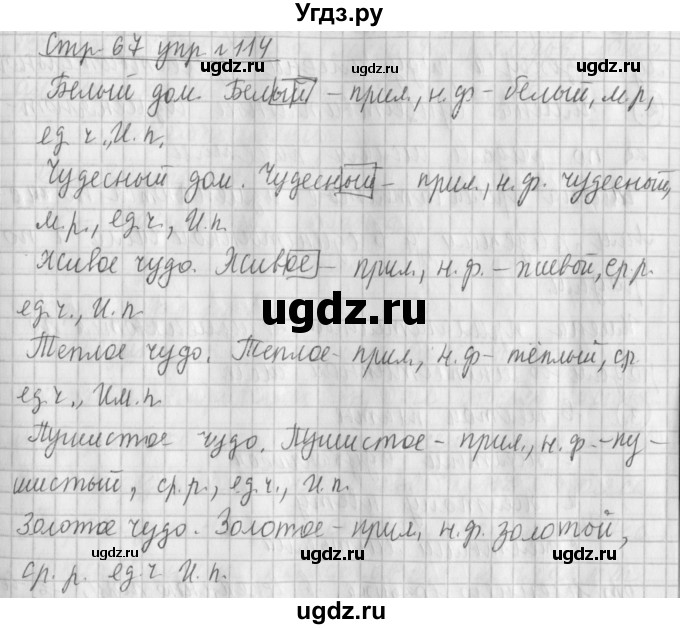 Угдз.ру
Стр 67 упр. 114
Белый дом. Белый – прил., н.ф – белый, м.р,
ед ч., И.п,
Чудесный дом. Чудесный – прил., н.ф. чудесный,
м.р., ед.ч., И.п.
Живое чудо. Живое – прил., н.ф. – живой, ср.р.
ед.ч., И.п
Теплое чудо. Теплое – прил., н.ф – тёплый, ср
ед.ч., Им.п.
Пушистое чудо. Пушистое – прил., н.ф. – пу-
шистый, ср.р., ед.ч., И.п.
Золотое чудо. Золотое – прил, н.ф. золотой,
ср. р. ед.ч И.п.
ugdz.ru
ugdz.ru
ugdz.ru
ugdz.ru
ugdz.ru
ugdz.ru
ugdz.ru
ugdz.ru
ugdz.ru
ugdz.ru
ugdz.ru
ugdz.ru